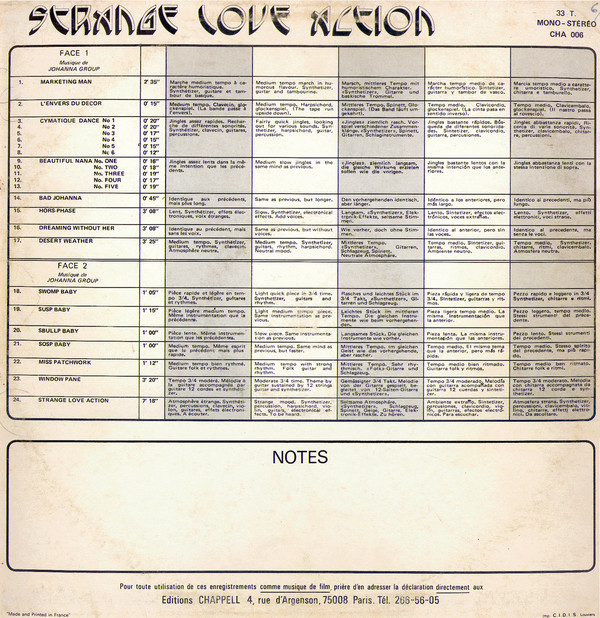 STRANGE LOVE ACTION
33 T.
MONO-STÉRÉO
CHA 006
6
FACE 1
Musique de
JOHANNA GROUP
1. MARKETING MAN 2' 35"
Marche medium tempo à caractère humoristique. Synthétizer, guitare et tambour de basque.
Medium tempo march in humorous flavour. Synthetizer, guitar and tambourine.
Marsch, mittleres Tempo mit humoristischem Charakter. «Synthetizer», Gitarre und baskische Trommel.
Marcha tempo medio de carácter humorístico. Sintetizer, guitarra y tambor de vasco.
Marcia tempo medio a carattere umoristico. Synthetizer, chitarra e tamburello.
2. L'ENVERS DU DECOR 0' 15"
Medium tempo, Clavecin, glockenspiel. (La bande passe à l'envers).
Medium tempo, Harpsichord, glockenspiel. (The tape run upside down).
Mittleres Tempo, Spinett, Glockenspiel. (Das Band läuft umgekehrt).
Tempo medio, Clavicordio, glockenspiel. (La cinta pasa en sentido inverso).
Tempo medio, Clavicembalo, glockenspiel. (Il nastro passa al rovescio).
3. CYMATIQUE DANCE No 1 0' 20"
4. No 2 0' 20"
5. No 3 0' 17"
6. No 4 0' 15"
7. No 5 0' 15"
8. No 6 0' 12"
Jingles assez rapides. Recherche de différentes sonorités. Synthétizer, clavecin, guitares, percussions.
Fairly quick jingles, looking out for various sounds. Synthetizer, harpsichord, guitar, percussion.
«Jingles» ziemlich rasch. Vorspiel verschiedener Zusammenklänge. «Synthetizer», Spinett, Gitarren, Schlaginstrumente.
Jingles bastante rápidos. Búsqueda de diferentes sonoridades. Sintetizer, clavicordio, guitarras, percusiones.
Jingles abbastanza rapidi. Ricerca di varie sonorità. Synthetizer, clavicembalo, chitarre, percussioni.
9. BEAUTIFUL NANA No. ONE 0' 16"
10. No. TWO 0' 18"
11. No. THREE 0' 19"
12. No. FOUR 0' 17"
13. No. FIVE 0' 19"
Jingles assez lents dans la même intention que les précédents.
Medium slow jingles in the same mind as previous.
«Jingles», ziemlich langsam, die gleiche Wirkung erzielen sollen wie die vorigen.
Jingles bastante lentos con la misma intención que los anteriores.
Jingles abbastanza lenti con la stessa intenzione di sopra.
14. BAD JOHANNA 0' 45"
Identique aux précédents, mais plus long.
Same as previous, but longer.
Den vorhergehenden identisch, aber länger.
Idéntico a los anteriores, pero más largo.
Identico ai precedenti, ma più lungo.
15. HORS-PHASE 3' 08"
Lent, Synthétizer, effets électroniques, voix étranges.
Slow. Synthetizer, electronical effects. Add voices.
Langsam. «Synthetizer», Elektronik-Effekte, seltsame Stimmen.
Lento. Sintetizer, efectos electrónicos, voces extrañas.
Lento. Synthetizer, effetti elettronici, voci strane.
16. DREAMING WITHOUT HER 3' 08"
Identique au précédent, mais sans les voix.
Same as previous, but without voices.
Wie vorher, doch ohne Stimmen.
Idéntico al anterior, pero sin las voces.
Identico al precedente, ma senza le voci.
17. DESERT WEATHER 3' 25"
Medium tempo. Synthétizer, guitares, rythmes, clavecin. Atmosphère neutre.
Medium tempo. Synthetizer, guitars, rhythm, harpsichord. Neutral mood.
Mittleres Tempo. «Synthetizer», Gitarren, Schlagzeug, Spinett. Neutrale Atmosphäre.
Tempo medio. Sintetizer, guitarras, ritmos, clavicordio. Ambiente neutro.
Tempo medio. Synthetizer, chitarre, ritmi, clavicembalo. Atmosfera neutra.
FACE 2
Musique de
JOHANNA GROUP
18. SWOMP BABY 1' 05"
Pièce rapide et légère en tempo 3/4. Synthétizer, guitares et rythmes.
Light quick piece in 3/4 time. Synthetizer, guitars and rhythm.
Rasches und leichtes Stück im 3/4 Takt, «Synthetizer», Gitarren und Schlagzeug.
Pieza rápida y ligera de tempo 3/4. Sintetizer, guitarras y ritmos.
Pezzo rapido e leggero in 3/4. Synthetizer, chitarre e ritmi.
19. SUSP BABY 1' 15"
Pièce légère medium tempo. Même instrumentation que la précédente.
Light medium tempo piece. Same instrumentation as previous.
Leichtes Stück im mittleren Tempo. Die gleichen Instrumente wie beim vorhergehenden.
Pieza ligera tempo medio. La misma instrumentación que la anterior.
Pezzo leggero, tempo medio. Stessi strumenti del precedente.
20. SBULLP BABY 1' 00"
Pièce lente. Même instrumentation que les précédentes.
Slow piece. Same instrumentation as previous.
Langsames Stück. Die gleichen Instrumente wie vorher.
Pieza lenta. La misma instrumentación que las anteriores.
Pezzo lento. Stessi strumenti dei precedenti.
21. SOSP BABY 1' 00"
Medium tempo. Même esprit que le précédent mais plus rapide.
Medium tempo. Same mind as previous, but faster.
Mittleres Tempo, im gleichen Geist wie das vorhergehende, aber rascher.
Tempo medio. El mismo espíritu que el anterior, pero más rápido.
Tempo medio. Stesso spirito del precedente, ma più rapido.
22. MISS PATCHWORK 1' 12"
Medium tempo bien rythmé. Guitare folk et rythmes.
Medium tempo with strong rhythm. Folk guitar and rhythm.
Mittleres Tempo. Sehr rhythmisch. «Folk»-Gitarre und Schlagzeug.
Tempo medio bien ritmado. Guitarra folk y ritmos.
Tempo medio ben ritmato. Chitarra folk e ritmi.
23. WINDOW PANE 3' 20"
Tempo 3/4 modéré. Mélodie à la guitare accompagnée par guitare 12 cordes et synthétizer.
Moderate 3/4 time. Theme by guitar sustained by 12 strings guitar and synthetizer.
Gemässigter 3/4 Takt. Melodie von der Gitarre gespielt, begleitet von 12-Saiten-Gitarre und «Synthetizer».
Tempo 3/4 moderado. Melodía con guitarra acompañada con guitarra 12 cuerdas y sintetizer.
Tempo 3/4 moderato. Melodia con chitarra accompagnata da chitarra 12 corde e synthetizer.
24. STRANGE LOVE ACTION 7' 18"
Atmosphère étrange. Synthétizer, percussions, clavecin, violon, guitares, effets électroniques. A écouter.
Strange mood. Synthetizer, percussion, harpsichord, violin, guitars, electronical effects. To be heard.
Seltsame Atmosphäre. «Synthetizer», Schlagzeug, Spinett, Geige, Gitarre, Elektronik-Effekte. Zu hören.
Ambiente extraño. Sintetizer, percusiones, clavicordio, violín, guitarras, efectos electrónicos. Para escuchar.
Atmosfera strana. Synthetizer, percussioni, clavicembalo, violino, chitarre, effetti elettronici. Da ascoltare.
NOTES
Pour toute utilisation de ces enregistrements comme musique de film, prière d'en adresser la déclaration directement aux
Editions CHAPPELL 4, rue d'Argenson, 75008 Paris. Tél. 266-56-05
"Made and Printed in France"
Imp. C.I.D.I.S. Louviers